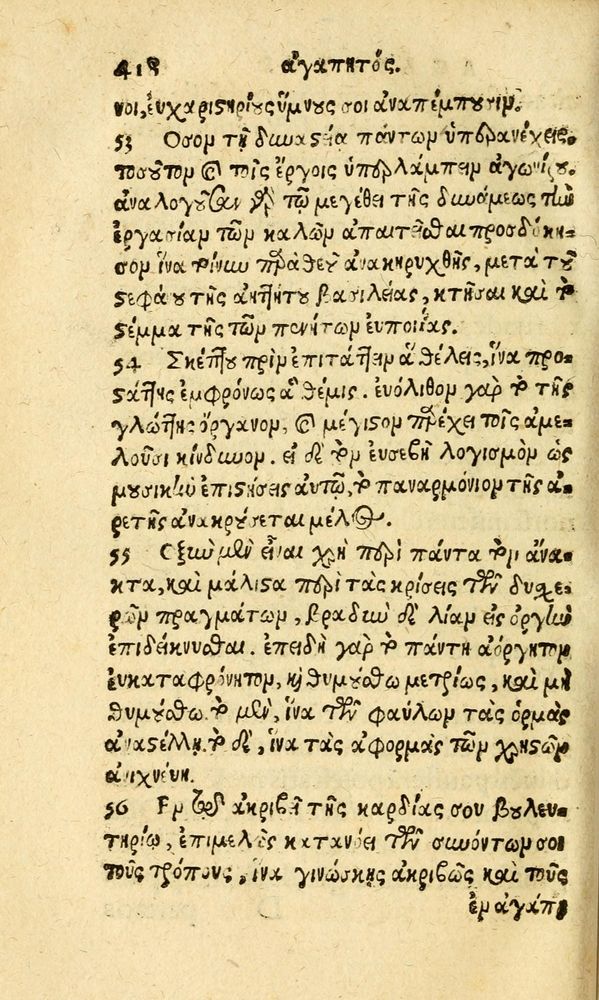 418 ἀγαπητός.
νοι, εὐχαριστηρίους ὕμνους σοι ἀναπέμπουσιν.
53 Οσον τῇ δυναστεία πάντων ὑπερανέχεις,
τοσοῦτον καὶ τοῖς ἔργοις ὑπερλάμπειν ἀγωνίζου.
ἀναλογοῦσαν γὰρ τῷ μεγέθει τῆς δυνάμεως τὴν
ἐργασίαν τῶν καλῶν ἀπαιτεῖσθαι προσδόκη-
σον ἵνα τοίνυν πρὸς θεοῦ ἀνακηρυχθῇς, μετὰ τοῦ
στεφάνου τῆς ἀηττήτου βασιλείας, κτῆσαι καὶ τὸ
στέμμα τῆς τῶν πενήτων εὐποιΐας.
54 Σκέπτου πρὶν ἐπιτάττειν ἃ θέλεις, ἵνα προ-
στάττῃς ἐμφρόνως ἃ θέμις. εὐόλισθον γὰρ τὸ τῆς
γλώττης ὄργανον, καὶ μέγιστον προσέχει τοῖς ἀμε-
λοῦσι κίνδυνον. εἰ δὲ τὸν εὐσεβῆ λογισμὸν ὡς
μουσικὸν ἐπιστήσεις αὐτῷ, τὸ παναρμόνιον τῆς ἀ-
ρετῆς ἀνακρούσεται μέλος.
55 Οξὺν μὲν εἶναι χρὴ περὶ πάντα τὸν ἄνα-
κτα, καὶ μάλιστα περὶ τὰς κρίσεις τῶν δυσχε-
ρῶν πραγμάτων, βραδὺν δὲ λίαν εἰς ὀργὴν
ἐπιδείκνυσθαι. ἐπειδὴ γὰρ τὸ πάντη ἀόργητον
εὐκαταφρόνητον, καὶ θυμούσθω μετρίως, καὶ μὴ
θυμούσθω. τὸ μὲν, ἵνα τῶν φαύλων τὰς ὁρμὰς
ἀναστέλλῃ. τὸ δὲ, ἵνα τὰς ἀφορμὰς τῶν χρηστῶν
ἀνιχνεύῃ.
56 Εν τῷ ἀκριβεῖ τῆς καρδίας σου βουλευ-
τηρίῳ, ἐπιμελῶς κατανόει τῶν συνόντων σοι
τοὺς τρόπους, ἵνα γινώσκῃς ἀκριβῶς καὶ τοὺς
ἐν ἀγάπῃ